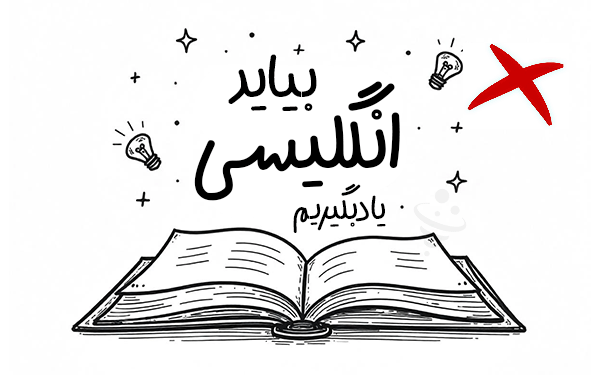 بیاید
انگلیسی
یادبگیریم